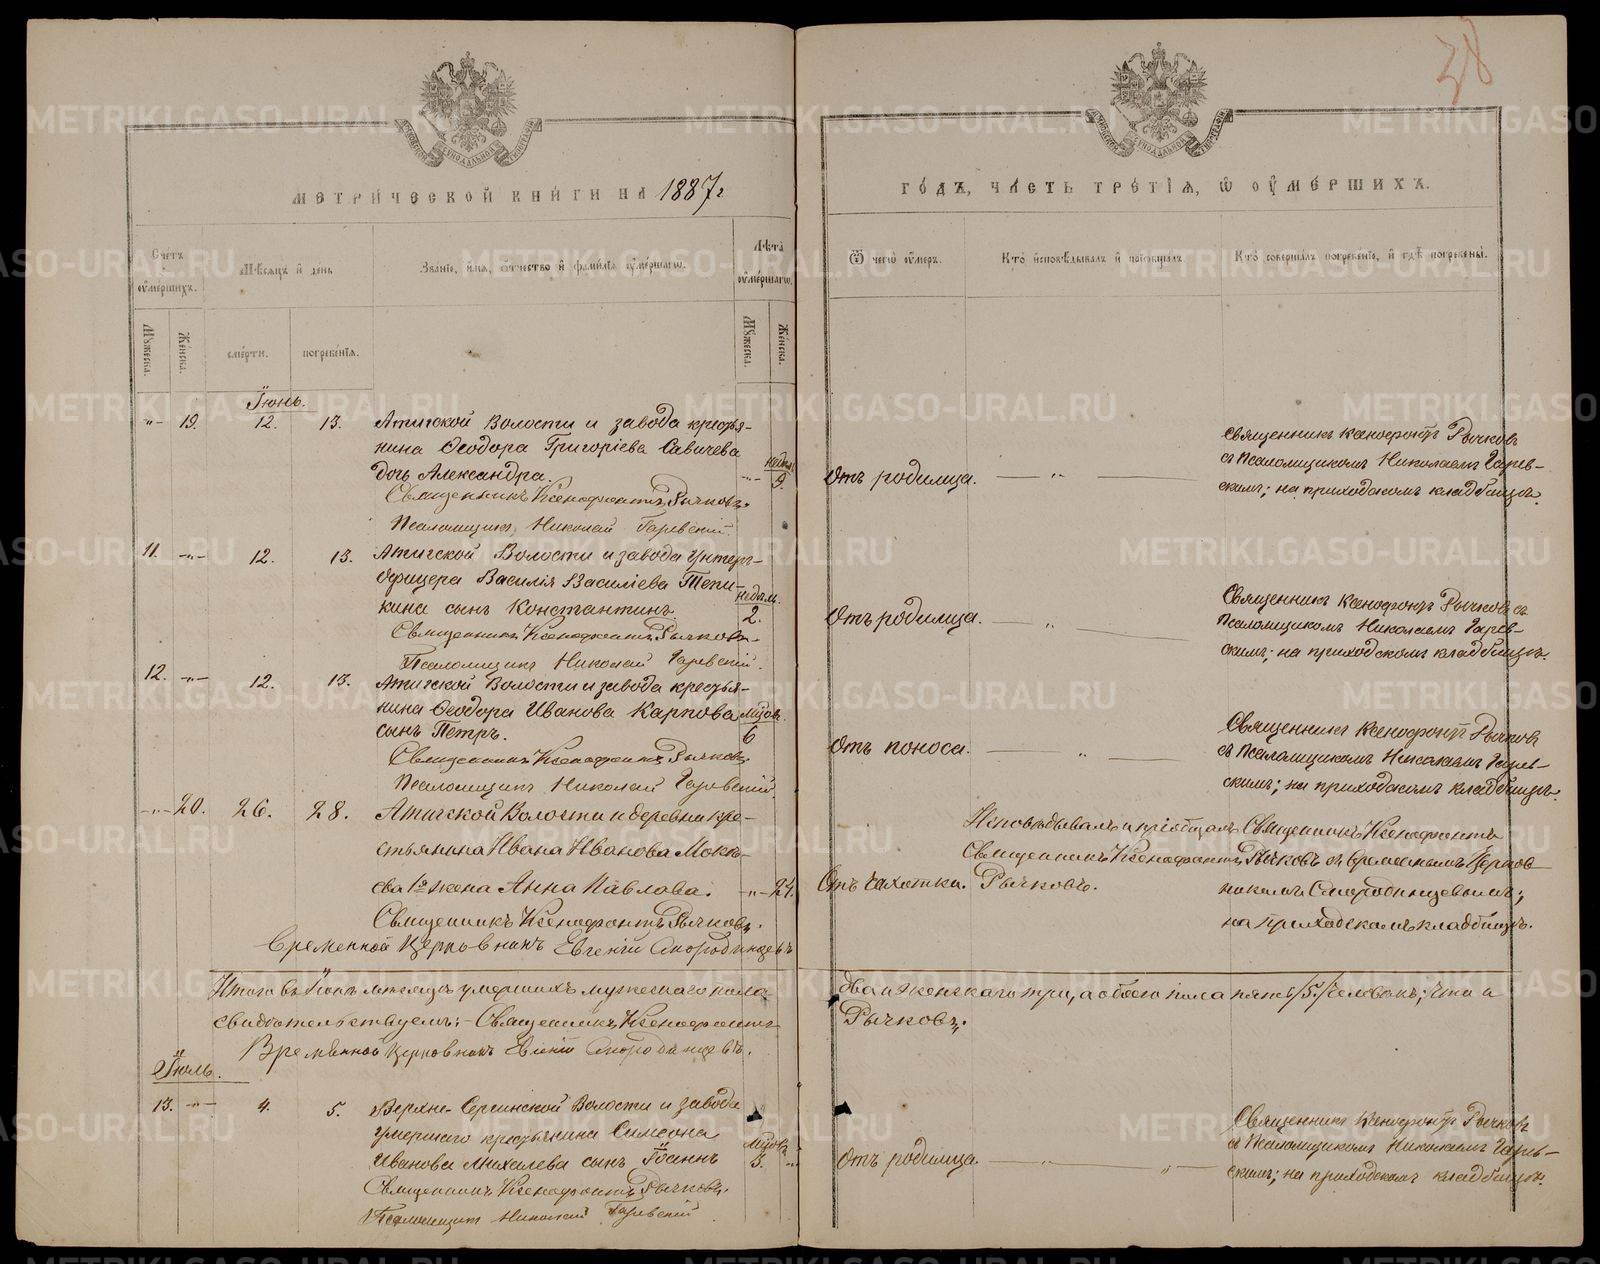 38
МЕТРИЧЕСКОЙ КНИГИ НА 1887 г
ГОДЪ, ЧАСТЬ ТРЕТІЯ, Ѿ ОУМЕРШИХЪ.
Счетъ оумершихъ.
Мѣсяцъ и день
Званіе, имя, отчество и фамилія оумершагѡ.
Лѣта оумершагѡ.
Ѿ чегѡ оумеръ.
Кто исповѣдывалъ и пріобщалъ.
Кто совершалъ погребеніе, и гдѣ погребены.
Мужеска.
Женска.
смерти.
погребенія.
Мужеска.
Женска.
Іюнь.
-"- 19. 12. 13. Атигской Волости и завода крестья-
нина Ѳеодора Григоріева Савичева
дочь Александра.
недѣл.
-"- 9.
Священникъ Ксенофонтъ Рычковъ.
Псаломщикъ Николай Гаревскій.
Отъ родимца. — " —
Священникъ Ксенофонтъ Рычковъ
съ Псаломщикомъ Николаемъ Гарев-
скимъ; на приходскомъ кладбищѣ.
11. -"- 12. 13. Атигской Волости и завода Унтеръ-
офицера Василія Василіева Тепи-
кина сынъ Константинъ
недѣль.
2.
Священникъ Ксенофонтъ Рычковъ.
Псаломщикъ Николай Гаревскій.
Отъ родимца. — " —
Священникъ Ксенофонтъ Рычковъ съ
Псаломщикомъ Николаемъ Гарев-
скимъ; на приходскомъ кладбищѣ.
12. -"- 12. 13. Атигской Волости и завода крестья-
нина Ѳеодора Иванова Карпова
сынъ Петръ.
мѣсов.
6
Священникъ Ксенофонтъ Рычковъ.
Псаломщикъ Николай Гаревскій.
Отъ поноса. — " —
Священникъ Ксенофонтъ Рычковъ
съ Псаломщикомъ Николаемъ Гарев-
скимъ; на приходскомъ кладбищѣ.
-"- 20. 26. 28. Атигской Волости и деревни кре-
стьянина Ивана Иванова Мокѣ-
ева 1º жена Анна Павлова. -"- 24.
Священникъ Ксенофонтъ Рычковъ.
Временной Церковникъ Евгеній Смородинцевъ
Отъ чахотки.
Исповѣдывалъ и пріобщалъ
Священникъ Ксенофонтъ
Рычковъ.
Священникъ Ксенофонтъ
Рычковъ съ Временнымъ Церков-
никомъ Смородинцевымъ;
на Приходскомъ кладбищѣ.
Итого въ Іюнѣ мѣсяцѣ умершихъ мужескаго пола два и женскаго три, а обоего пола пять /5./ человѣкъ; что и
свидѣтельствуемъ: – Священникъ Ксенофонтъ Рычковъ.
Временной Церковникъ Евгеній Смородинцевъ.
Іюль.
13. -"- 4. 5. Верхне-Сергинской Волости и завода
умершаго крестьянина Симеона
Иванова Михалева сынъ Іоаннъ
мѣсов.
3. "
Священникъ Ксенофонтъ Рычковъ.
Псаломщикъ Николай Гаревскій
Отъ родимца. — " — " —
Священникъ Ксенофонтъ Рычковъ
съ Псаломщикомъ Николаемъ Гарев-
скимъ; на приходскомъ кладбищѣ.
METRIKI.GASO-URAL.RU